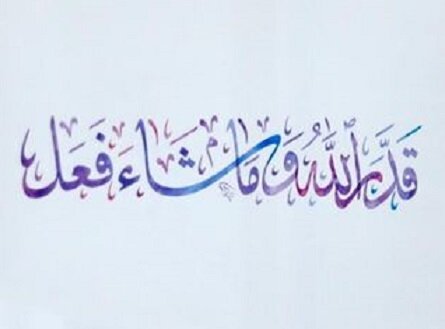 قَدَّرَ ٱللَّهُ وَمَا شَاءَ فَعَلَ